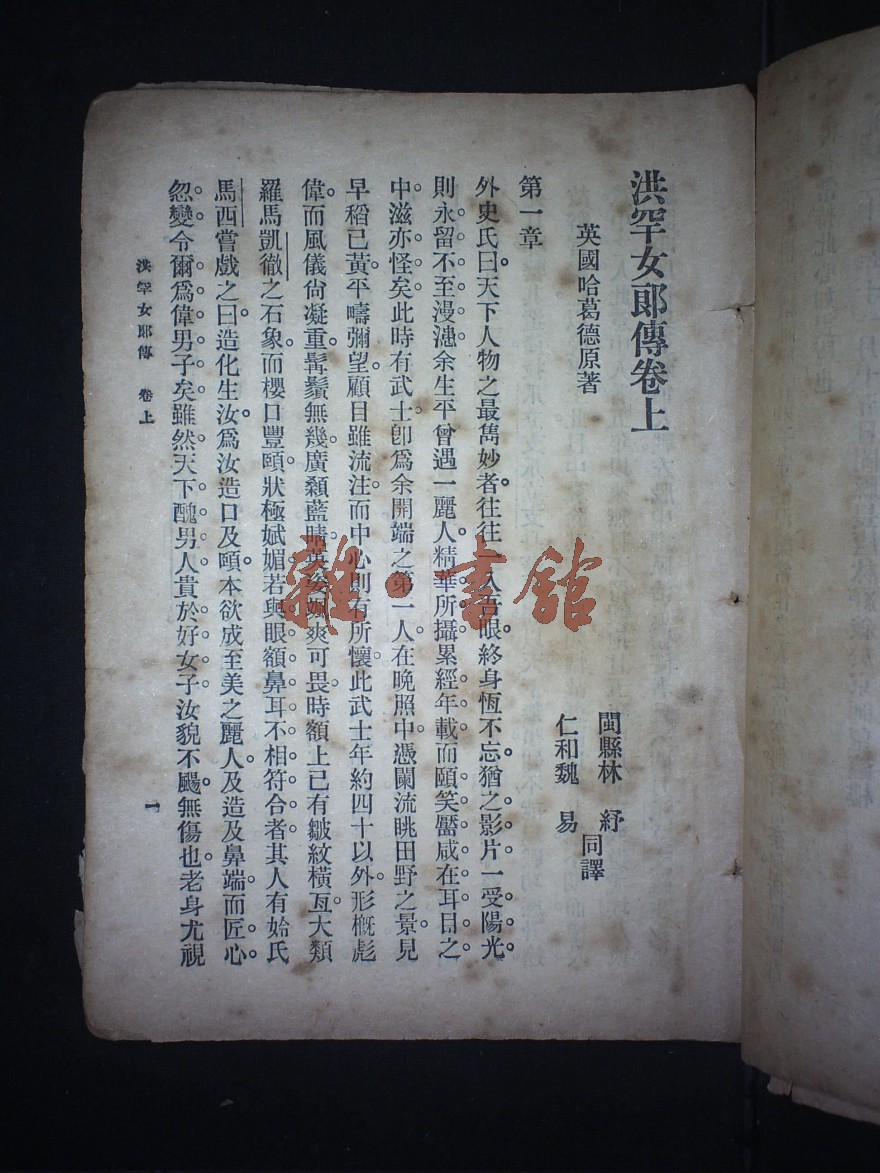 洪罕女郎傳卷上
英國哈葛德原著
閩縣林 紓
仁和魏 易
同譯
第一章
外史氏曰。天下人物之最雋妙者。往往一入吾眼。終身恆不忘。猶之影片一受陽光。
則永留不至漫漶。余生平曾遇一麗人。精華所攝。累經年載。而頤笑靨咸在耳目之
中。滋亦怪矣。此時有武士。卽爲余開端之第一人。在晚照中。憑闌流眺田野之景。見
早稻已黃。平疇彌望。顧目雖流注。而中心則有所懷。此武士年約四十以外。形概彪
偉。而風儀尙凝重。髯鬚無幾。廣顙藍睛。英姿颯爽可畏。時額上已有皺紋橫亙。大類
羅馬凱徹之石象。而櫻口豐頤。狀極斌媚。若與眼額鼻耳不相符合者。其人有姶氏
馬西嘗戲之曰。造化生汝。爲汝造口及頤。本欲成至美之麗人。及造及鼻端。而匠心
忽變。令爾爲偉男子矣。雖然。天下醜男人貴於好女子。汝貌不颺。無傷也。老身尤視
洪罕女郎傳 卷上
一
雜·書館